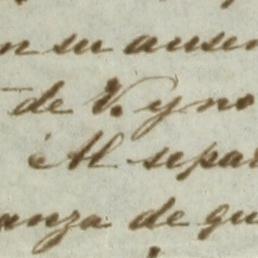 n su ausen
de V. y no
Al sepa
anza de qu